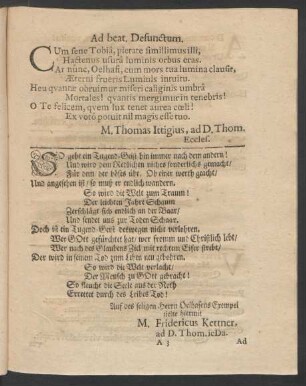 Ad beat. Defunctum.
CUm sene Tobiâ, plorare simillimus illi,
Hactenus usurâ luminis orbus eras.
At nunc, Oelhafi, cum mors tua lumina clausit,
Æterni frueris Luminis intuitu.
Heu quantæ obruimur miseri caliginis umbrâ
Mortales! quantis mergimur in tenebris!
O Te felicem, quem lux tenet aurea cœli!
Ex voto potuit nil magis esse tuo.
M. Thomas Ittigius, ad D. Thom.
Eccles.
SO geht ein Tugend-Geist hin immer nach dem andern!
Und wird dem Nechsten solches sonderlich gemacht/
Für dem der böses übt. Ob einer werth geacht/
Und angesehen ist/ so muß er endlich wandern.
So wird die Welt zum Traum!
Der leichten Jahre Schaum
Zerschlägt sich endlich an der Baar/
Und sendet uns zur Todten Schaar.
Doch ist ein Tugend-Geist deswegen nicht verlohren.
Wer GOtt gefürchtet hat/ wer fromm und Christlich lebt/
Wer nach des Glaubens Ziel mit rechtem Eifer strebt/
Der wird in seinem Tod zum Leben neu gebohren.
So wird die Welt verlacht.
Der Mensch zu GOtt gebracht!
So fleucht die Seele aus der Noth
Errettet durch des Leibes Tod!
Auf des seligen Herrn Oelhafens Exempel
siehe hiermit
M. Fridericus Kettner,
ad D. Thom. ἱεDια.
A 3
Ad